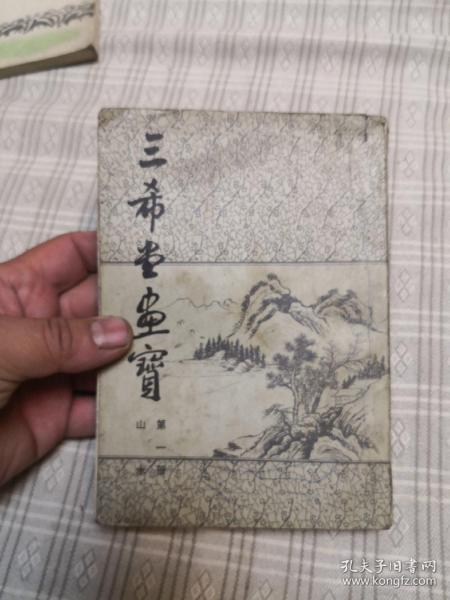 三希堂画寳
第一册
山水
孔夫子旧书网
www.kongfz.com